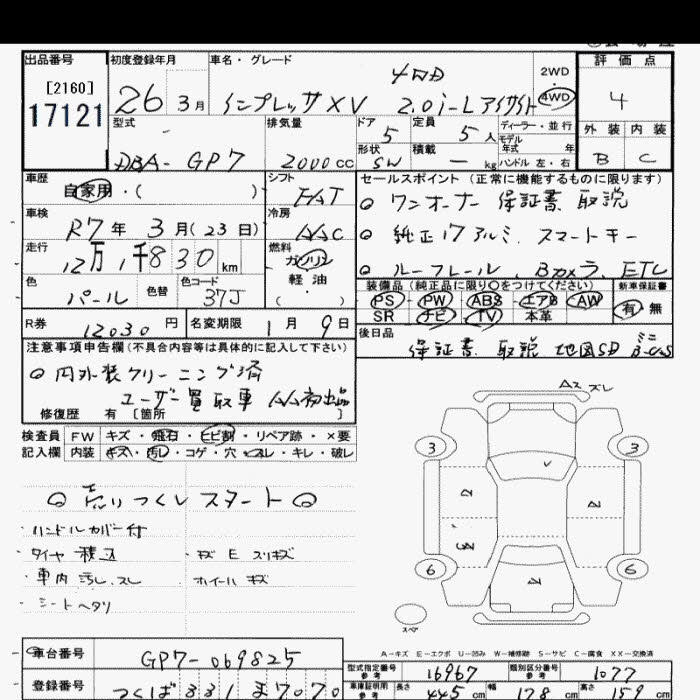 出品番号
[2160]
17121
初度登録年月
26 3月
車名・グレード
4WD
インプレッサXV 2.0i-Lアイサイト
2WD
4WD
評価点
4
外装 内装
B C
型式
DBA-GP7
排気量
2000cc
ドア
5
定員
5人
形状
SW
積載
―kg
ディーラー・並行
モデル
年式 年
ハンドル 左・右
車歴
自家用・( )
シフト
FAT
車検
R7年 3月(23日)
冷房
AAC
走行
12万1千830km
燃料
ガソリン
軽油
( )
色
パール
色替
色コード
37J
セールスポイント(正常に機能するものに限ります)
◎ ワンオーナー 保証書 取説
◎ 純正17アルミ、スマートキー
◎ ルーフレール、Bカメラ、ETC
装備品(純正品に限り○をつけてください)
PS・PW・ABS・エアB・AW
SR ナビ・TV 本革
新車保証書
有・無
R券
12030円
名変期限
1月 9日
後日品
保証書 取説 地図SD
注意事項申告欄(不具合内容等は具体的に記入して下さい)
◎ 内外装クリーニング済
ユーザー買取車 AA初出品
修復歴 有[箇所 ]
検査員
記入欄
FW キズ・飛石・ヒビ割・リペア跡・×要
内装 キズ・汚レ・コゲ・穴・スレ・キレ・破レ
◎ 売りつくしスタート ◎
・ハンドルカバー付
・タイヤ積込
・キズ E スリキズ
・車内 汚レ、スレ
・ホイール キズ
・シートヘタリ
A2 ズレ
3
3
6
6
スペア
A-キズ E-エクボ U-凹み W-補修跡 S-サビ C-腐食 XX-交換済
車台番号
GP7-069825
登録番号
つくば 331 ま7070
型式指定番号
参考
16967
類別区分番号
参考
1077
車庫証明用
参考
長さ
445cm
幅
178cm
高さ
159cm